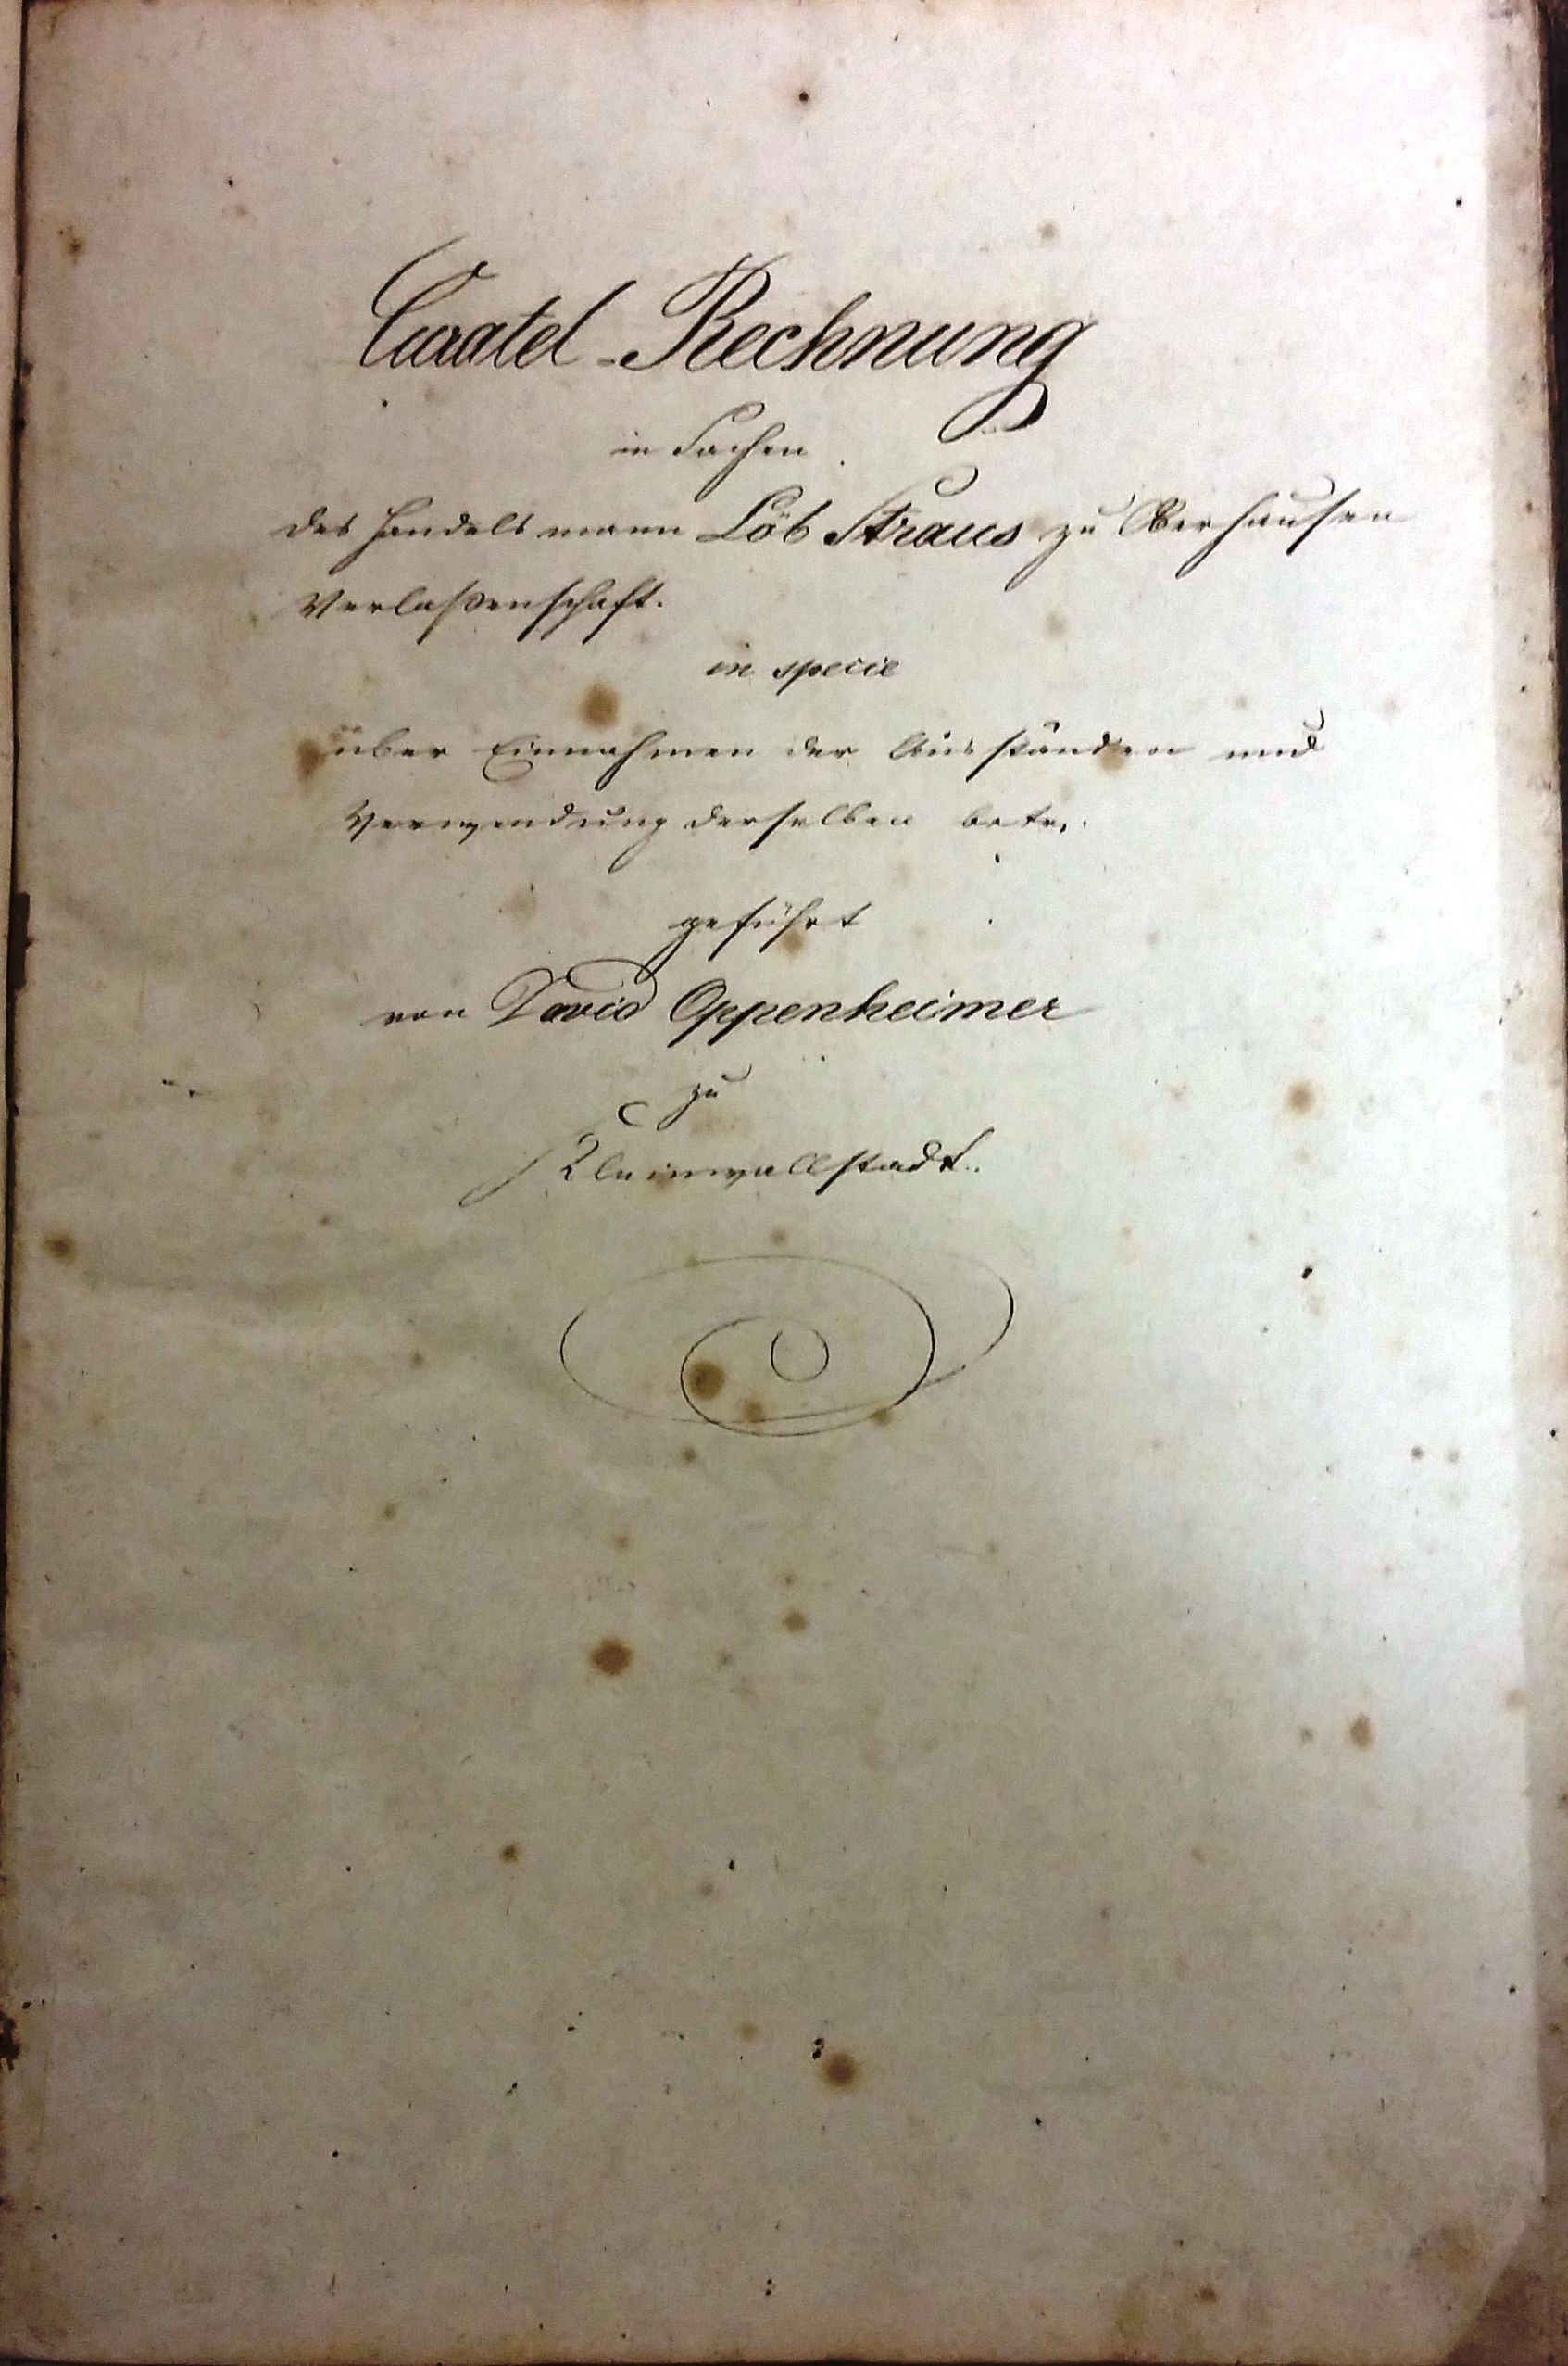 Curatel-Rechnung
in Sachen
des Handelsmann Löb Straus zu Oberhausen
Verlaßenschaft.
in specie
über Einnahmen der Ausständen und
Verwendung derselben betr.
geführt
von David Oppenheimer
zu
Kleinwallstadt.